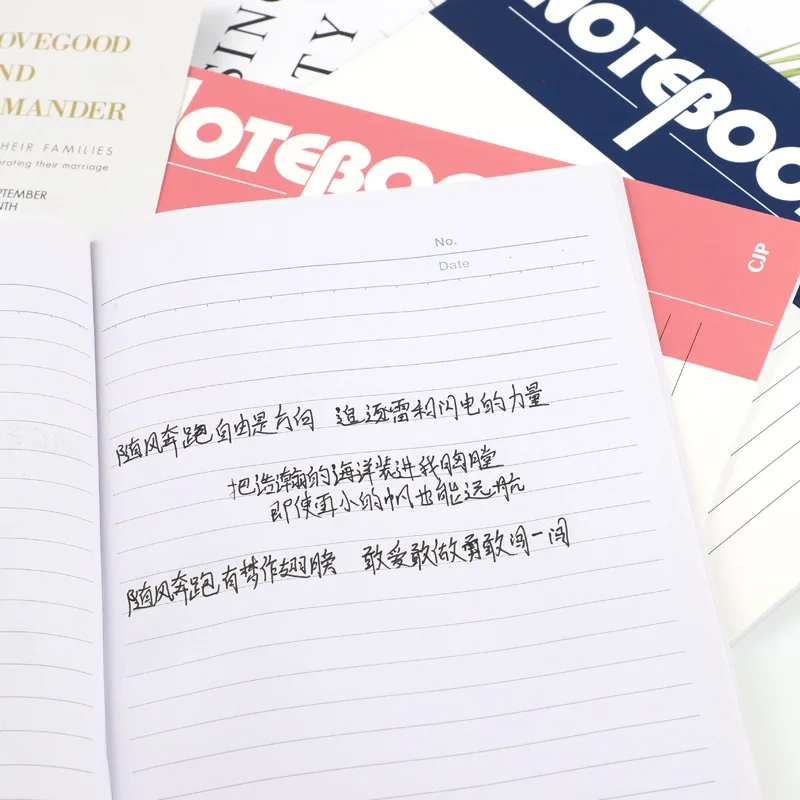 OVEGOOD
ND
MANDER
HEIR FAMILIES
rating their marriage
PTEMBER
NTH
SING
TY
NOTEBOO
OTEBOO
CJP
No.
Date
随风奔跑自由是方向 追逐雷和闪电的力量
把浩瀚的海洋装进我胸膛
即使再小的帆也能远航
随风奔跑有梦作翅膀 敢爱敢做勇敢闯一闯